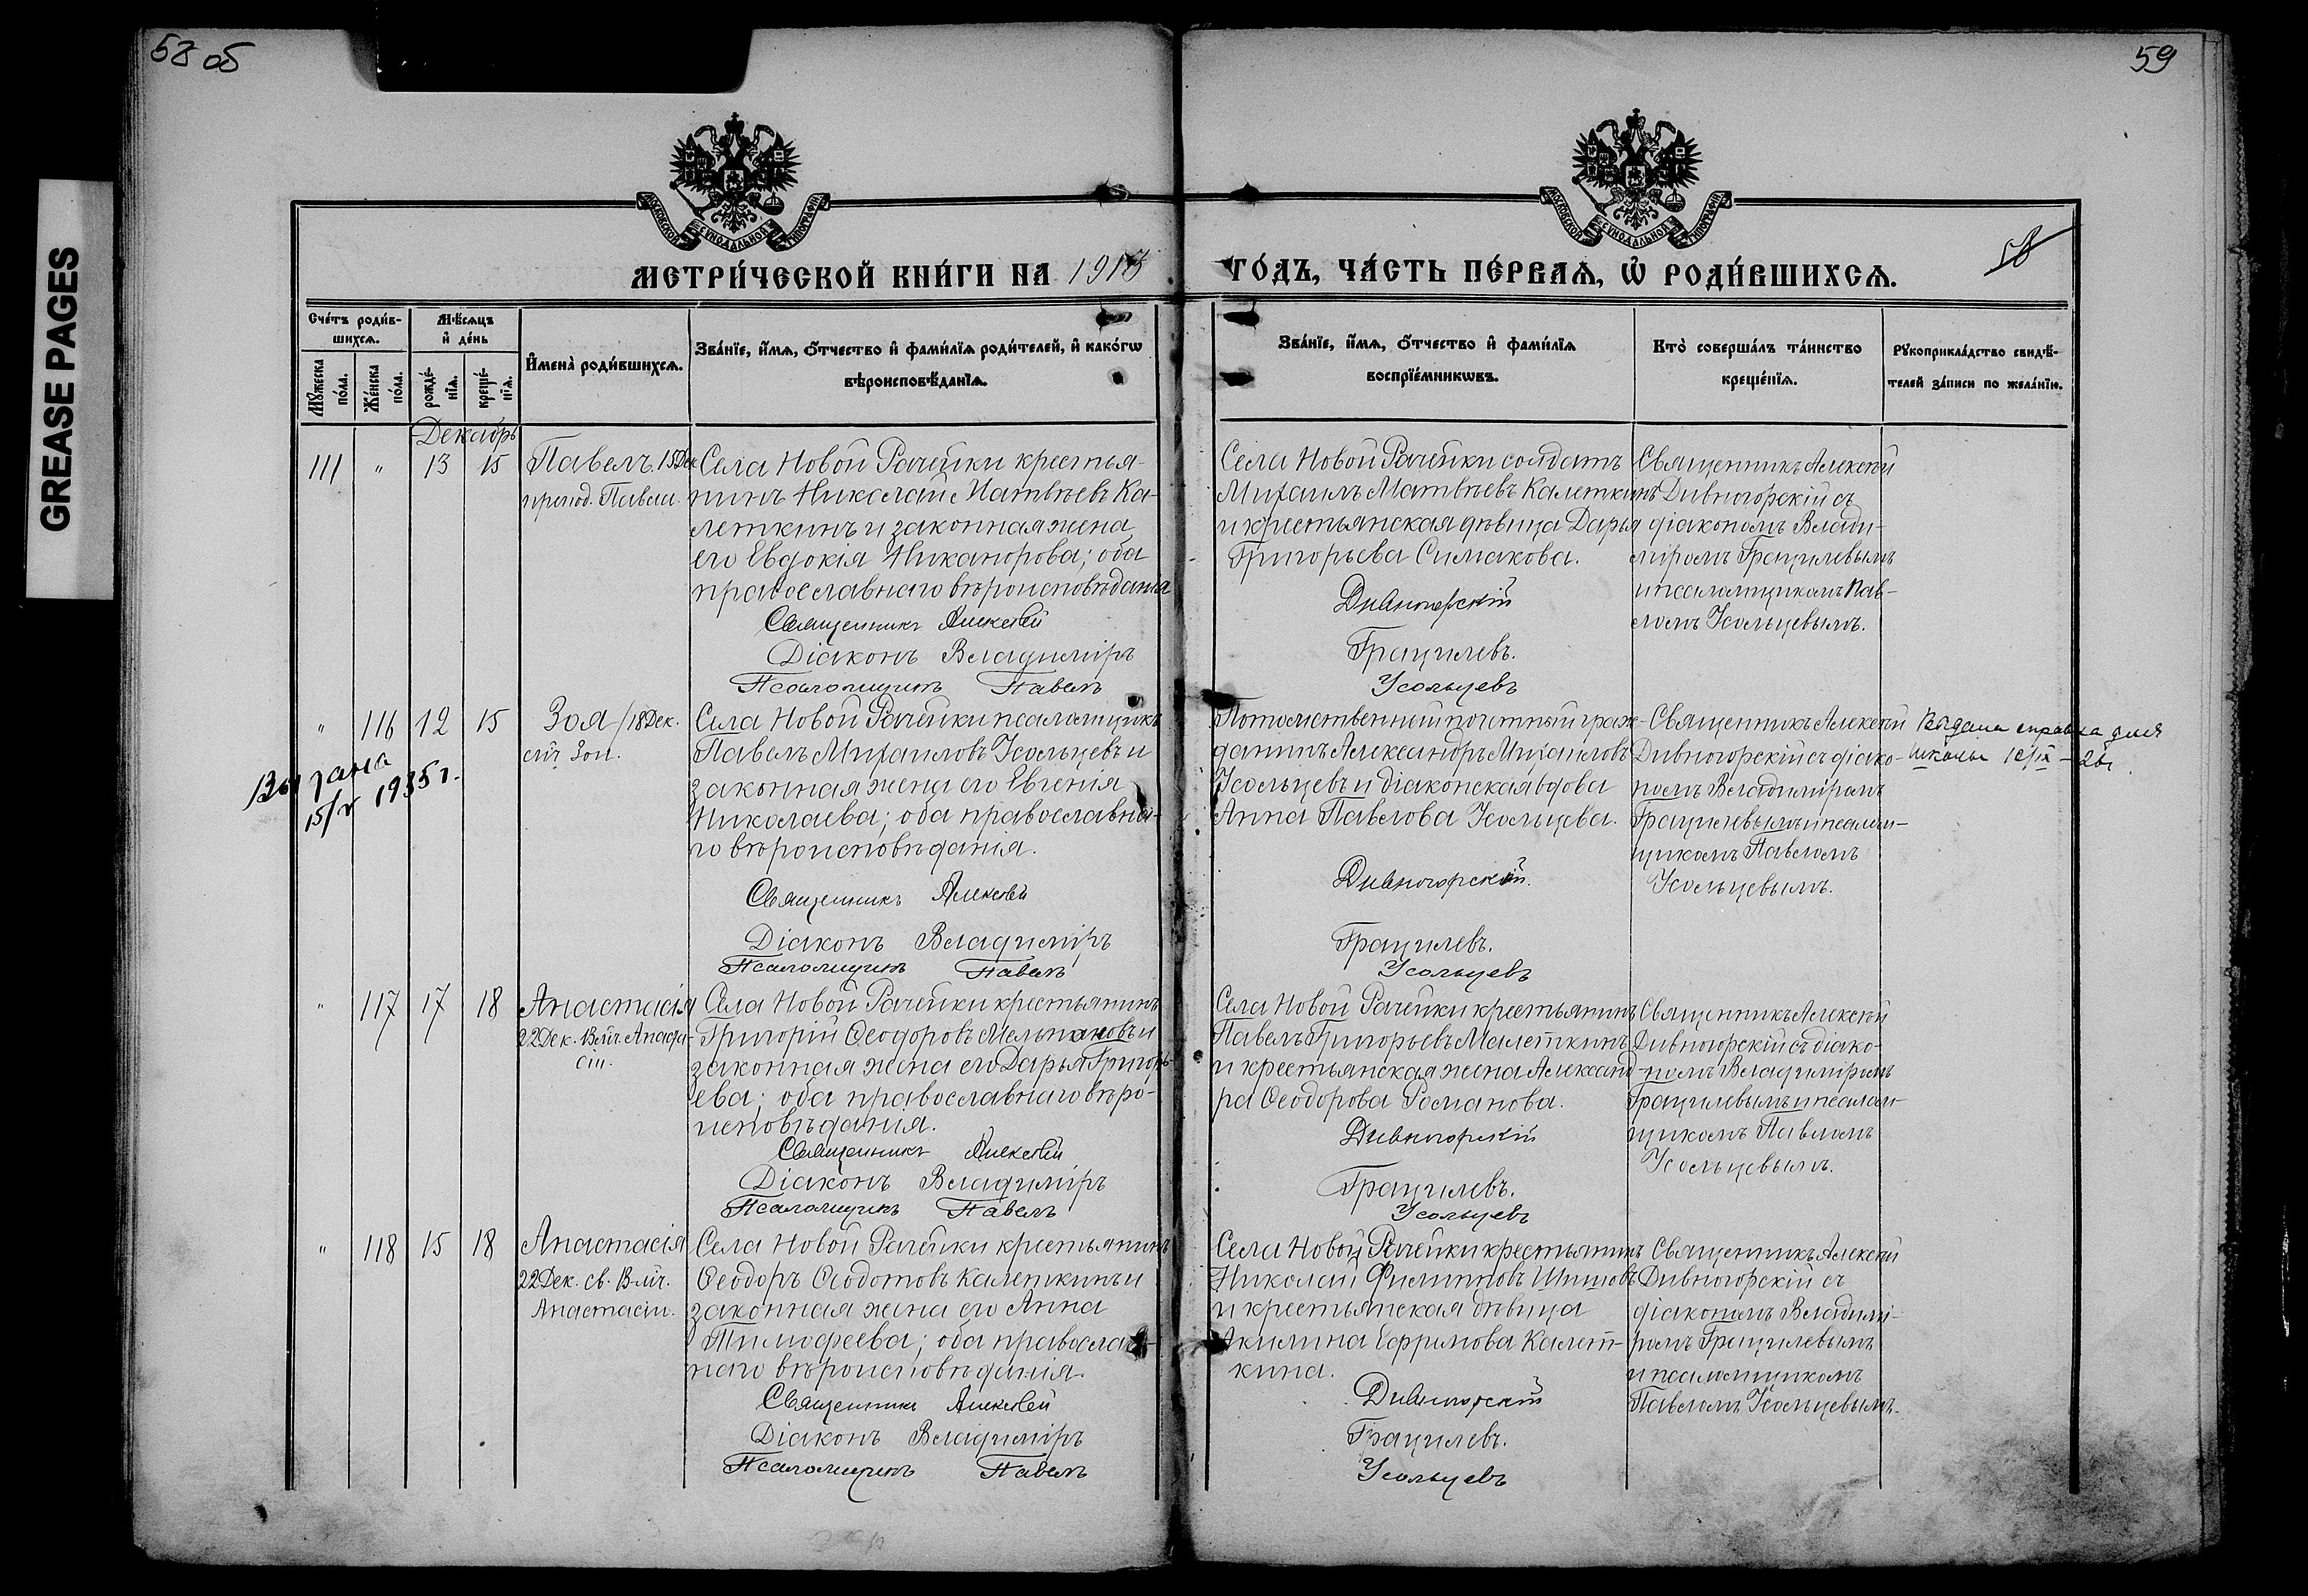 58 об
59
GREASE PAGES
МОСКОВСКОЙ СѴНОДАЛЬНОЙ ТИПОГРАФІИ
МОСКОВСКОЙ СѴНОДАЛЬНОЙ ТИПОГРАФІИ
58
МЕТРИ́ЧЕСКОЙ КНИ́ГИ НА 1913
ГО́ДЪ, ЧА́СТЬ ПЕ́РВАѦ, Ѡ҆ РОДИ́ВШИХСѦ.
Сче́тъ роди́в-
шихсѧ.
Мѣ́сѧцъ
и҆ де́нь
Мꙋ́жеска
по́ла.
Же́нска
по́ла.
рожде́-
нїѧ.
креще́-
нїѧ.
И҆мена̀ роди́вшихсѧ.
Зва́нїе, и҆́мѧ, ѻ҆́тчество и҆ фами́лїѧ роди́телей, и҆ како́гѡ
вѣроисповѣ́данїѧ.
Зва́нїе, и҆́мѧ, ѻ҆́тчество и҆ фами́лїѧ
воспрїе́мникѡвъ.
Кто̀ соверша́лъ та́инство
креще́нїѧ.
Рꙋкоприкла́дство свидѣ́-
телей за́писи по жела́нїю.
Декабрь
111 " 13 15
Павелъ. 15 Дек.
препод. Павла.
Села Новой Рачейки крестья-
нинъ Николай Матвѣевъ Ка-
леткинъ и законная жена
его Евдокія Никанорова; оба
православнаго вѣроисповѣданія
Священникъ Алексѣй
Діаконъ Владиміръ
Псаломщикъ Павелъ
Села Новой Рачейки солдатъ
Михаилъ Матвѣевъ Калеткинъ
и крестьянская дѣвица Дарья
Григорьева Симакова.
Дивногорскій
Грацилевъ.
Усольцевъ
Священникъ Алексѣй
Дивногорскій съ
діакономъ Влади-
міромъ Грацилевымъ
и псаломщикомъ Пав-
ломъ Усольцевымъ.
" 116 12 15
Зоя /18 Дек.
мч. Зои.
Выдана
15/V 1935 г.
Села Новой Рачейки псаломщикъ
Павелъ Михаиловъ Усольцевъ и
законная жена его Евгенія
Николаева; оба православна-
го вѣроисповѣданія.
Священникъ Алексѣй
Діаконъ Владиміръ
Псаломщикъ Павелъ
Потомственный почетный граж-
данинъ Александръ Михаиловъ
Усольцевъ и діаконская вдова
Анна Павлова Усольцева.
Дивногорскій.
Грацилевъ.
Усольцевъ
Священникъ Алексѣй
Дивногорскій съ діако-
номъ Владиміромъ
Грацилевымъ и псалом-
щикомъ Павломъ
Усольцевымъ.
Выдана справка для
школы
" 117 17 18
Анастасія
22 Дек. Влмч. Анаста-
сіи.
Села Новой Рачейки крестьянинъ
Григорій Ѳеодоровъ и
законная жена его Дарья Григорь-
ева; оба православнаго вѣро-
исповѣданія.
Священникъ Алексѣй
Діаконъ Владиміръ
Псаломщикъ Павелъ
Села Новой Рачейки крестьянинъ
Павелъ Григорьевъ Малеткинъ
и крестьянская жена Александ-
ра Ѳеодорова Романова.
Дивногорскій
Грацилевъ.
Усольцевъ
Священникъ Алексѣй
Дивногорскій съ діако-
номъ Владиміромъ
Грацилевымъ и псалом-
щикомъ Павломъ
Усольцевымъ.
" 118 15 18
Анастасія
22 Дек. св. Влмч.
Анастасіи.
Села Новой Рачейки крестьянинъ
Ѳеодоръ Ѳеодотовъ Калеткинъ и
законная жена его Анна
Тимофеева; оба православ-
наго вѣроисповѣданія.
Священникъ Алексѣй
Діаконъ Владиміръ
Псаломщикъ Павелъ
Села Новой Рачейки крестьянинъ
Николай Филипповъ Шишовъ
и крестьянская дѣвица
Акилина Ефримова Калет-
кина.
Дивногорскій
Грацилевъ.
Усольцевъ
Священникъ Алексѣй
Дивногорскій съ
діакономъ Владимі-
ромъ Грацилевымъ
и псаломщикомъ
Павломъ Усольцевымъ.